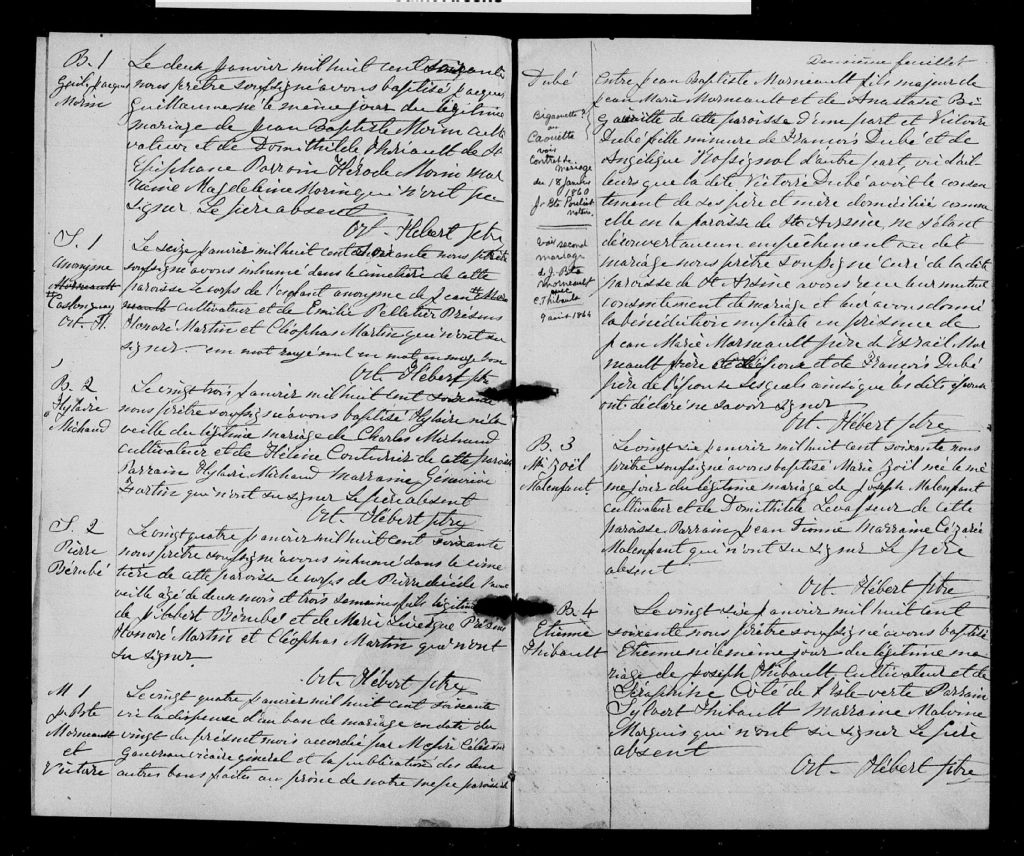 B. 1
Guil. Jacques
Morin
Le deux janvier mil huit cent soixante
nous prêtre soussigné avons baptisé Jacques
Guillaume né le même jour du légitime
mariage de Jean Baptiste Morin culti
vateur et de Domithilde Thériault de St
Epiphane Parrain Hérode Morin mar
raine Magdeleine Morin qui n'ont pu
signer Le père absent
Ort. Hébert Ptre
S. 1
Anonyme
Castonguay
Ort. H.
Le seize janvier mil huit cent soixante nous prêtre
soussigné avons inhumé dans le cimetière de cette
paroisse le corps de l'enfant anonyme de Jean
cultivateur et de Emilie Pelletier Présens
Honoré Martin et Cléophas Martin qui n'ont su
signer. un mot rayé nul un mot en marge bon
Ort. Hébert Ptre
B. 2
Hylaire
Michaud
Le vingt trois janvier mil huit cent soixante
nous prêtre soussigné avons baptisé Hylaire né la
veille du légitime mariage de Charles Michaud
cultivateur et de Hélène Couturier de cette paroisse
Parrain Hylaire Michaud Marraine Géneviève
Fortin qui n'ont su signer Le père absent
Ort. Hébert Ptre
S. 2
Pierre
Bérubé
Le vingt quatre janvier mil huit cent soixante
nous prêtre soussigné avons inhumé dans le cime
tière de cette paroisse le corps de Pierre décédé
veille agé de deux mois et trois semaines fils légitime
de Bérubé et de Marie Présens
Honoré Martin et Cléophas Martin qui n'ont
su signer
Ort. Hébert Ptre
M 1
J. Bte
Morneault
et
Victoire
Le vingt quatre janvier mil huit cent soixante
vu la dispense d'un ban de mariage en date du
vingt du présent mois accordée par
Gauvreau vicaire général et la publication des deux
autres bans faite au prône de notre messe paroissiale
Deuxième feuillet
Dubé
Bigaouette?
ou
Caouette
voir
Contrat de
mariage
du 18 Janvier
1860
J. Bte Pouliot
notaire.
Voir second
mariage
de J. Bte
Morneault
avec
C. Thibault
9 août 1864
Entre Jean Baptiste Morneault fils majeur de
Jean Marie Morneault et de Anastasie Bi
gaouette de cette paroisse d'une part et Victoire
Dubé fille mineure de Francois Dubé et de
Angélique Rossignol d'autre part vu d'ail
leurs que la dite Victoire Dubé avoit le consen
tement de ses père et mère domiciliée comme
elle en la paroisse de St Arsène ne s'étant
découvert aucun empêchement au dit
mariage nous prêtre soussigné curé de la dite
paroisse de St Arsène avons reçu leur mutuel
consentement de mariage et leur avons donné
la bénédiction nuptiale en présence de
Jean Marie Morneault père d'Israël Mor
neault frère de l'époux et de Francois Dubé
père de l'épouse lesquels ainsi que les dits époux
ont déclaré ne savoir signer
Ort. Hébert Ptre
B. 3
Me Zoël
Malenfant
Le vingt six janvier mil huit cent soixante nous
prêtre soussigné avons baptisé Marie Zoël née le mê
me jour du légitime mariage de Joseph Malenfant
cultivateur et de Domithilde Levasseur de cette
paroisse. Parrain Jean Marraine Cézarée
Malenfant qui n'ont su signer Le père
absent
Ort. Hébert Ptre
B. 4
Etienne
Thibault
Le vingt six janvier mil huit cent
soixante nous prêtre soussigné avons baptisé
Etienne né le même jour du légitime ma
riage de Joseph Thibault cultivateur et de
Séraphine Côté de l'Isle-verte Parrain
Sylvert Thibault Marraine Malvine
Marquis qui n'ont su signer Le père
absent
Ort. Hébert Ptre